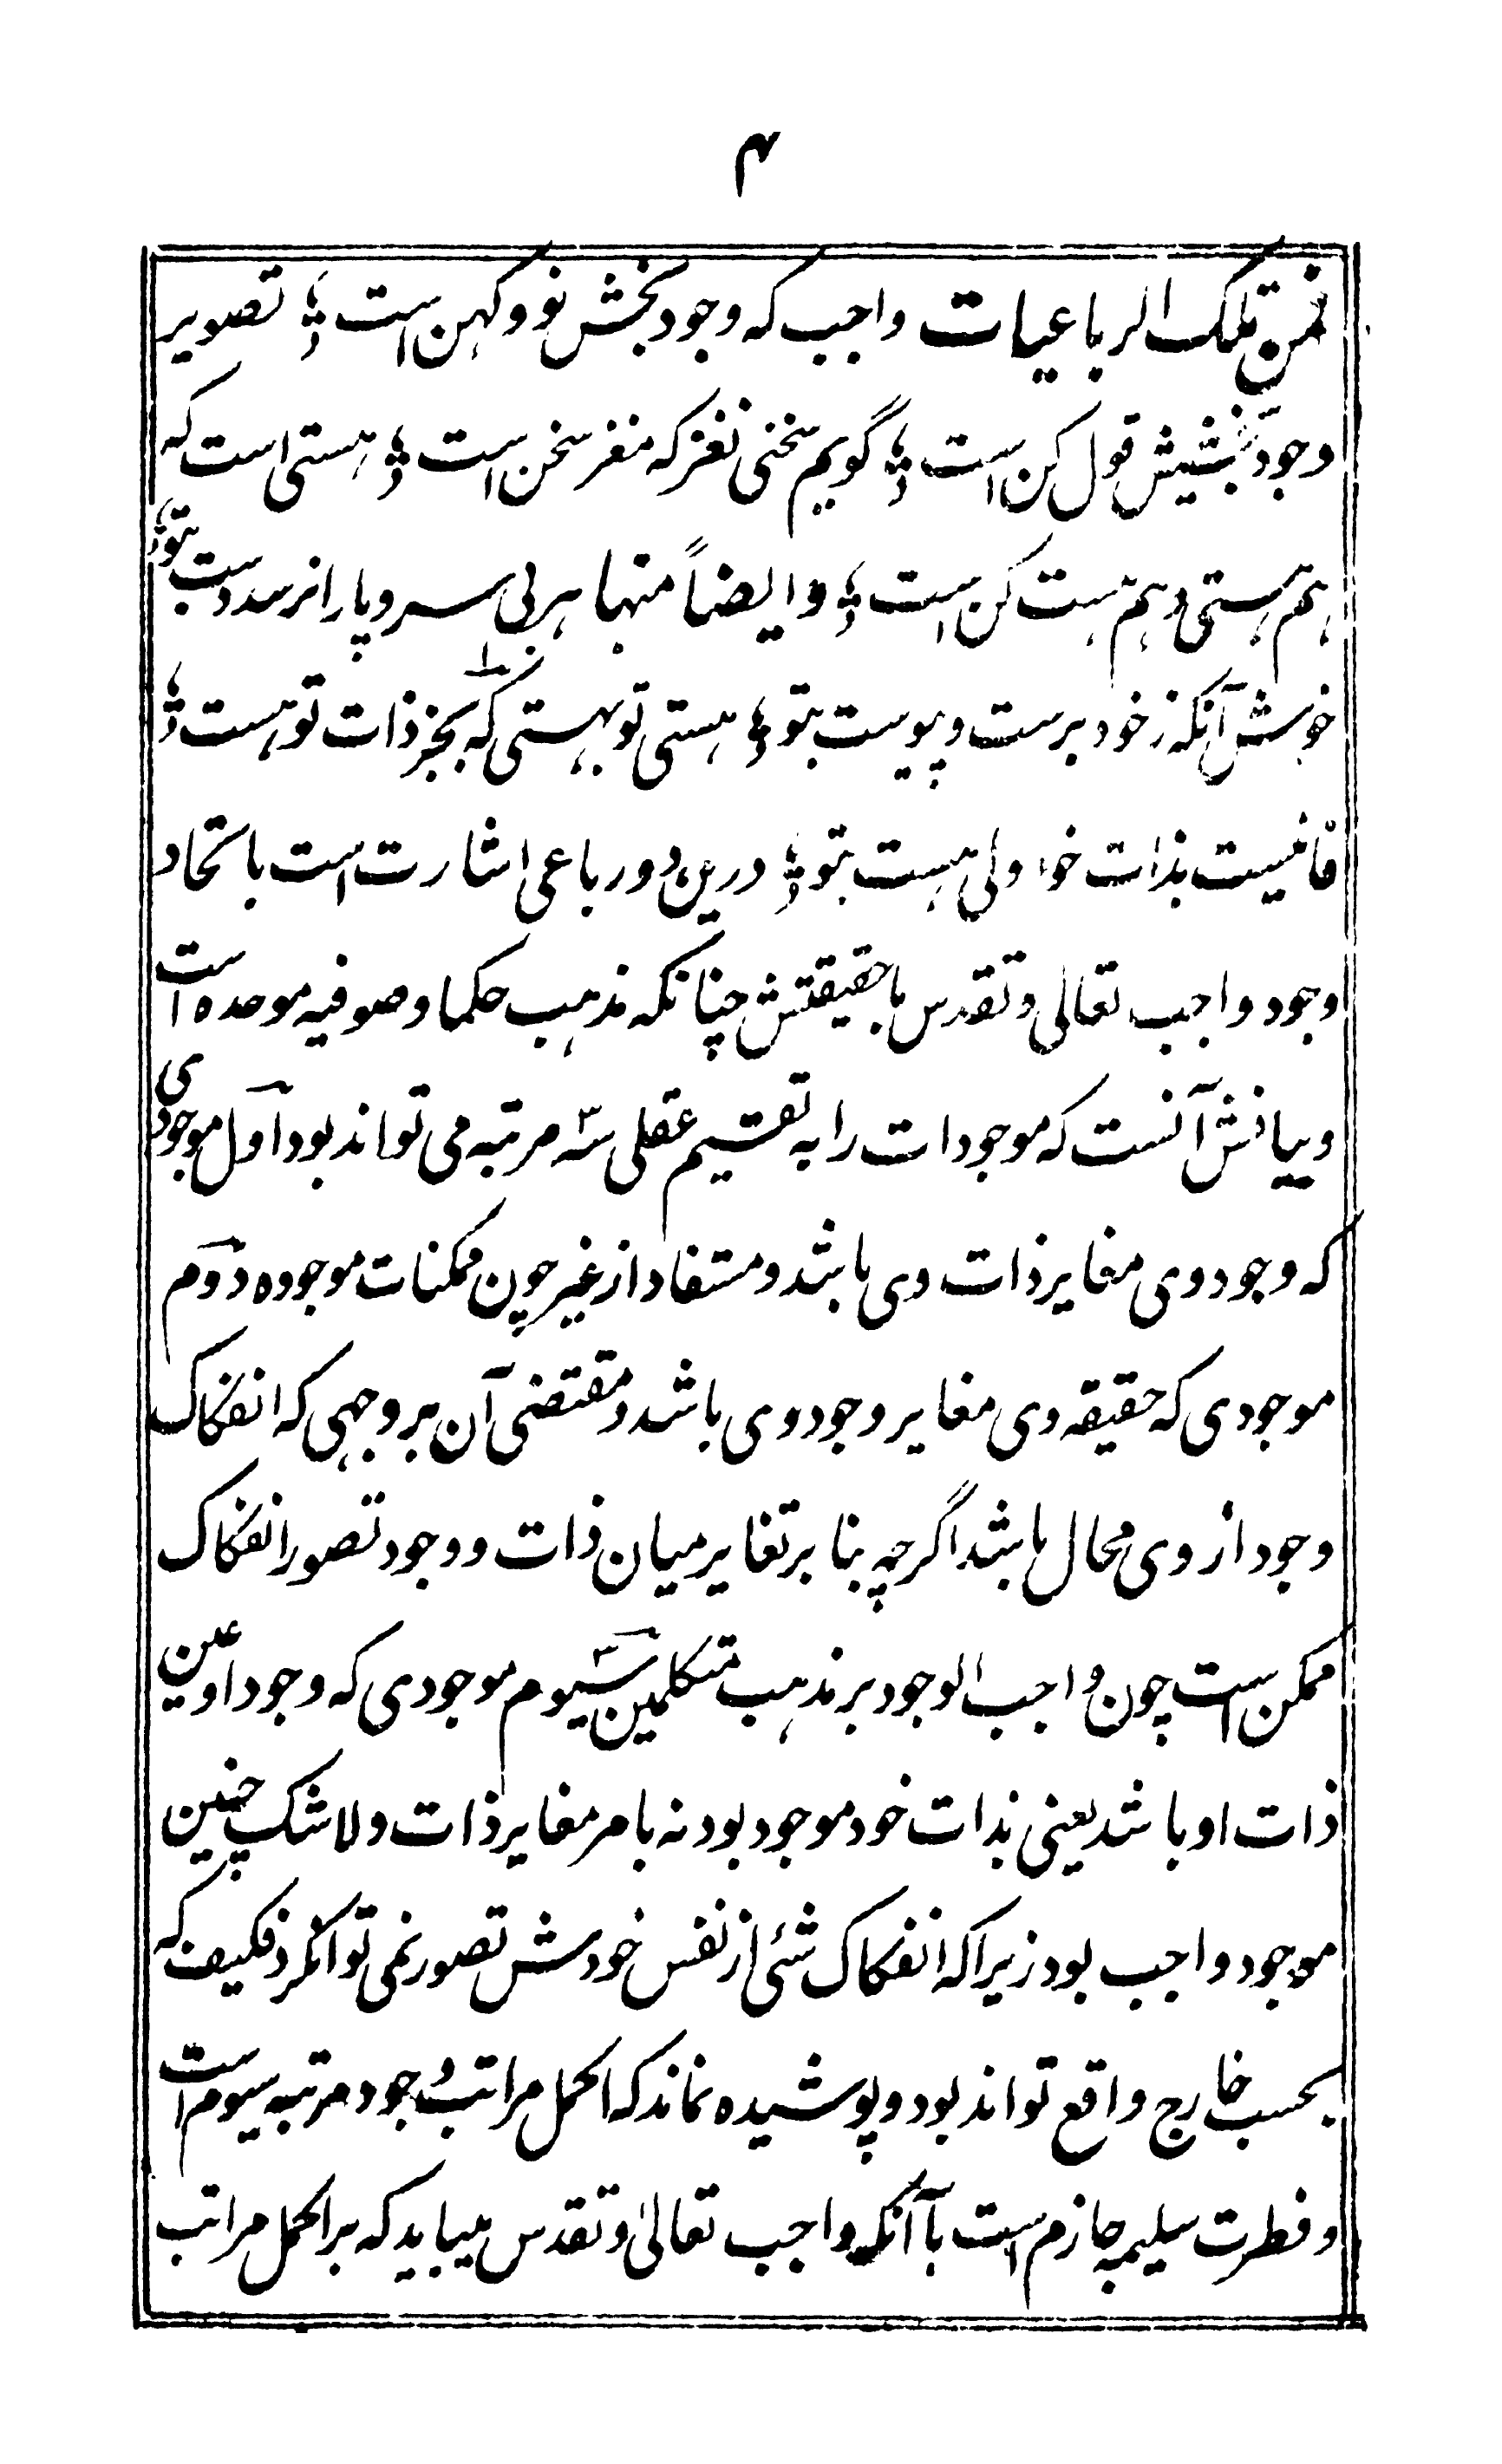 ۴
فمن تلک الرباعیات واجب که وجود بخش نو و کهن است ؛ تصویر
وجود بخشیش قول کن است ؛ گویم سخنی نغز که مغز سخن است ؛ هستی است که
هم هستی و هم هست کن است ؛ و ایضاً منها هر بی سر و پا را نرسد دست بتو ؛
خوش آنکه ز خود برست و پیوست بتو ؛ هستی تو بهستی که بجز ذات تو هست ؛
فانیست بذات خود ولی هست بتو ؛ درین دو رباعی اشارت است باتحاد
وجود واجب تعالی و تقدس با حقیقتش چنانکه مذهب حکما و صوفیه موحده است
و بیانش آنست که موجودات را به تقسیم عقلی سه مرتبه می تواند بود اول موجودی
که وجود وی مغایر ذات وی باشد و مستفاد از غیر چون ممکنات موجوده دوم
موجودی که حقیقه وی مغایر وجود وی باشد و مقتضی آن بر وجهی که انفکاک
وجود از وی محال باشد اگرچه بنا بر تغایر میان ذات و وجود تصور انفکاک
ممکن است چون واجب الوجود بر مذهب متکلمین سیوم موجودی که وجود او عین
ذات او باشد یعنی بذات خود موجود بود نه بامر مغایر ذات و لاشک چنین
موجود واجب بود زیراکه انفکاک شئی از نفس خودش تصور نمی توانکرد فکیف که
بحسب خارج واقع تواند بود و پوشیده نماند که اکمل مراتب وجود مرتبه سیوم است
و فطرت سلیمه جازم است باآنکه واجب تعالیٰ و تقدس میباید که بر اکمل مراتب